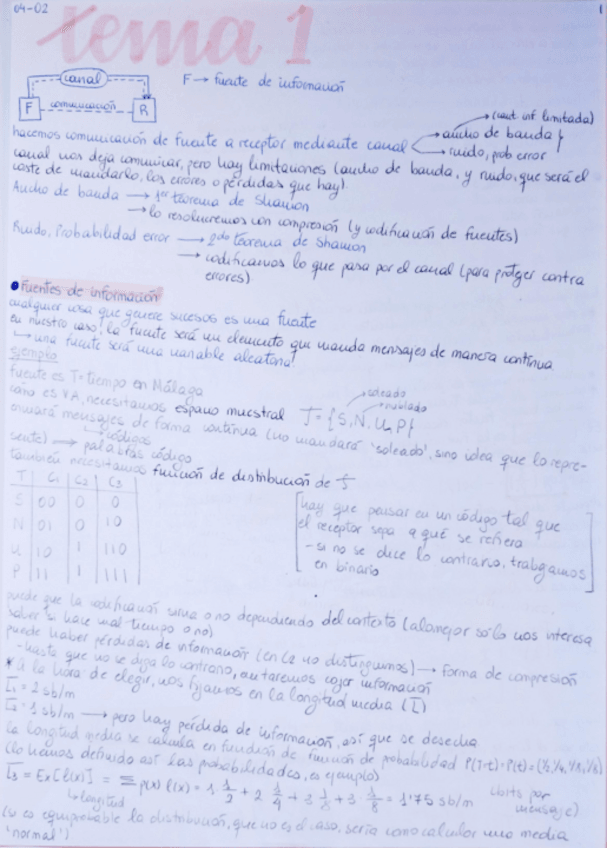 04-02
1
tema 1
canal
F comunicación R
F → fuente de información
hacemos comunicación de fuente a receptor mediante canal → ancho de banda → (cant inf limitada)
→ ruido, prob error
canal nos deja comunicar, pero hay limitaciones (ancho de banda, y ruido, que será el
coste de mandarlo, los errores o pérdidas que hay).
Ancho de banda → 1er teorema de Shannon
→ lo resolveremos con compresión (y codificación de fuentes)
Ruido, Probabilidad error → 2do teorema de Shannon
→ codificamos lo que pasa por el canal (para proteger contra
errores)
• Fuentes de información
cualquier cosa que genere sucesos es una fuente
en nuestro caso, la fuente será un elemento que manda mensajes de manera continua
↳ una fuente será una variable aleatoria!
ejemplo
fuente es T = tiempo en Málaga
como es VA, necesitamos espacio muestral T = {S, N, U, P}
→ soleado
→ nublado
enviará mensajes de forma continua (no mandará 'soleado', sino idea que lo repre-
↳ códigos
sente) → palabras código
también necesitamos función de distribución de
T C1 C2 C3
S 00 0 0
N 01 0 10
U 10 1 110
P 11 1 111
[hay que pensar en un código tal que
el receptor sepa a qué se refiere
- si no se dice lo contrario, trabajamos
en binario]
puede que la codificación sirva o no dependiendo del contexto (a lo mejor sólo nos interesa
saber si hace mal tiempo o no)
puede haber pérdidas de información (en C2 no distinguimos) → forma de compresión
- hasta que no se diga lo contrario, información
* A la hora de elegir, nos fijamos en la longitud media (L̄)
L̄1 = 2 sb/m
L̄2 = 1 sb/m → pero hay pérdida de información, así que se desecha
la longitud media se calcula en función de función de probabilidad P(T=t) = P(t) = (1/2, 1/4, 1/8, 1/8)
(lo hemos definido así las probabilidades, es ejemplo)
L̄3 = Ex[l(x)] = Σ p(x) l(x) = 1 · 1/2 + 2 · 1/4 + 3 · 1/8 + 3 · 1/8 = 1'75 sb/m (bits por
mensaje)
↳ longitud
(si es equiprobable la distribución, que no es el caso, sería como calcular una media
'normal')